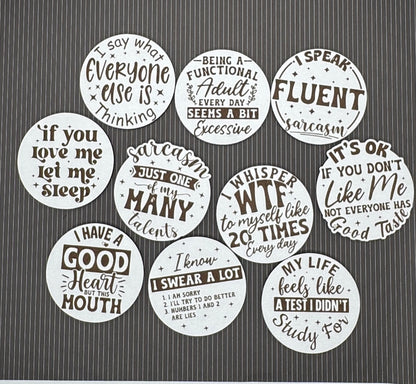 I say what
EVERYONE
else is
Thinking
BEING A
FUNCTIONAL
Adult
EVERY DAY
SEEMS A BIT
Excessive
I SPEAK
FLUENT
sarcasm
if you
Love me
Let me
sleep
sarcasm
JUST ONE
of my
MANY
talents
I WHISPER
WTF
to myself like
20 TIMES
Every day
IT'S OK
IF YOU DON'T
Like Me
NOT EVERYONE HAS
Good Taste
I HAVE A
GOOD
Heart
BUT THIS
MOUTH
I know
I SWEAR A LOT
1. I AM SORRY
2. I'LL TRY TO DO BETTER
3. NUMBERS 1 AND 2
ARE LIES
MY LIFE
feels like
A TEST I DIDN'T
Study For